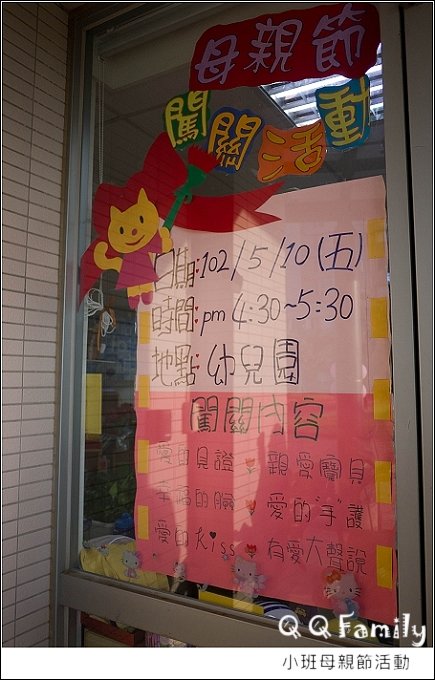 母親節
闖關活動
日期:102/5/10(五)
時間:pm 4:30~5:30
地點:幼兒園
闖關內容
愛的見證 親愛寶貝
幸福的臉 愛的"手"護
愛的Kiss 有愛大聲說
QQ Family
小班母親節活動